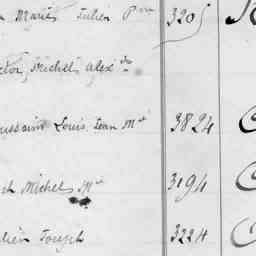 Marie Julien Pre 3205
Victor Michel Alexdre
Toussaint Louis Jean Mie 3824
Michel Mie 3194
Julien Joseph 3224